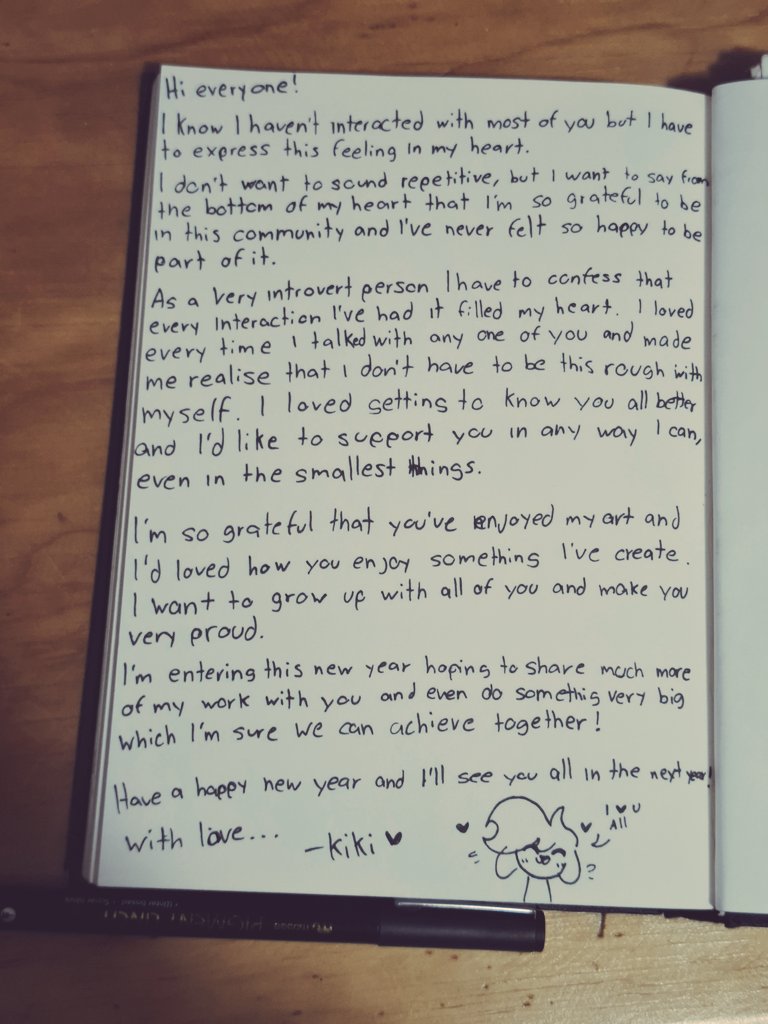 Hi everyone!
I know I haven't interacted with most of you but I have
to express this feeling in my heart.
I don't want to sound repetitive, but I want to say from
the bottom of my heart that I'm so grateful to be
in this community and I've never felt so happy to be
part of it.
As a very introvert person I have to confess that
every interaction I've had it filled my heart. I loved
every time I talked with any one of you and made
me realise that I don't have to be this rough with
myself. I loved getting to know you all better
and I'd like to support you in any way I can,
even in the smallest things.
I'm so grateful that you've enjoyed my art and
I'd loved how you enjoy something I've create.
I want to grow up with all of you and make you
very proud.
I'm entering this new year hoping to share much more
of my work with you and even do somethig very big
which I'm sure we can achieve together!
Have a happy new year and I'll see you all in the next year!
with love... -kiki ♥
I ♥ U
All